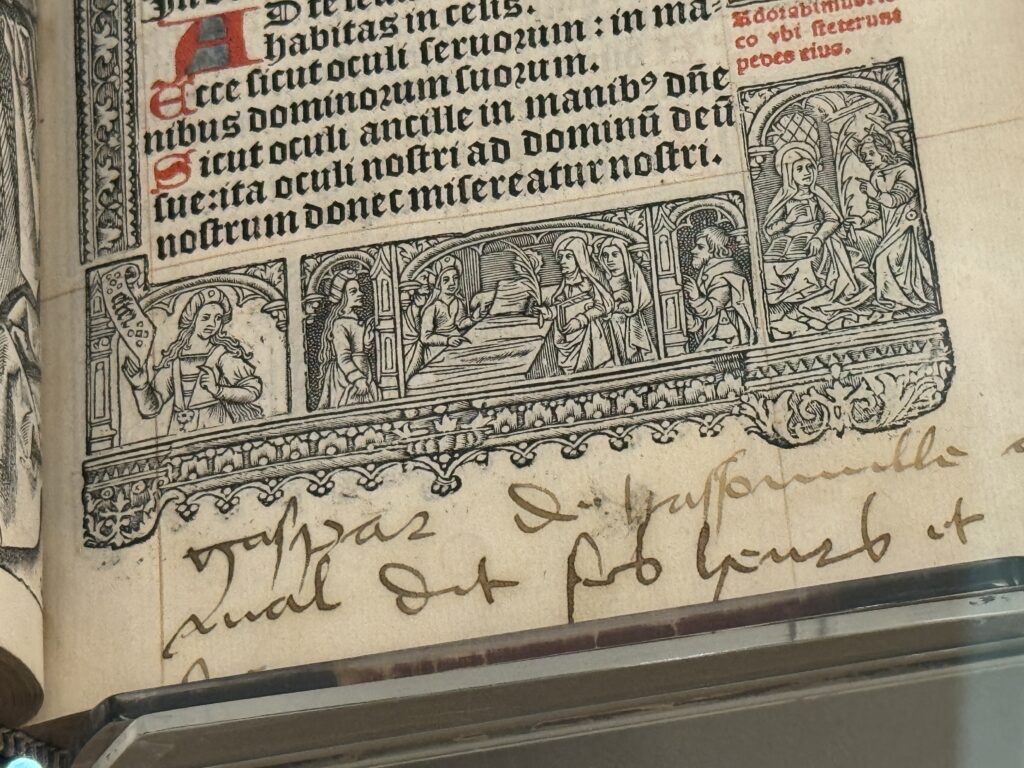 AD te
habitas in celis.
Ecce sicut oculi seruorum : in ma-
nibus dominorum suorum.
Sicut oculi ancille in manibꝰ dñe
sue:ita oculi nostri ad dominū deū
nostrum donec misereatur nostri.
co vbi steterunt
pedes eius.
gaspar de
dit heurs et